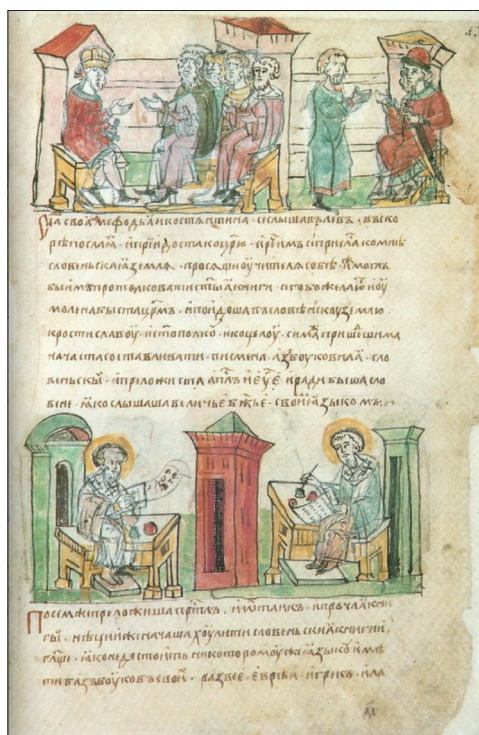 сна своꙗ меѳодьꙗ и костѧнтина · се слышавъ левъ · въско
рѣ посла ꙗ · и придоста ко цр҃ю · и реч҇ имъ се прислала ко мнѣ
словеньскаꙗ землѧ · просѧщи оучителѧ собѣ · иже моглъ
бы имъ протолковати ст҃ыꙗ книги · сего бо желають и оу
молена быста цр҃мъ · и поидоша въ словеньскую землю
к ростиславоу · и ст҃ополкоу · и коцелоу · сима же пришедшима
начаста составливати · писмена · азъбоуковьнаꙗ · сло
веньскы · и преложиста апс҃лъ и еуг҃е · и ради быша сло
вене · ꙗко слышаша величьꙗ бж҃ьꙗ · своимь ꙗзыкомъ :
посемже преложиша пс҃лтрь · и ѡктаикъ · и прочаꙗ кни
гы · нѣции же начаша хоулити словеньскиꙗ книги ·
гл҃ще · ꙗко не достоить никоторомоу же ꙗзыкоу имѣ
ти боукъвъ своихъ · развее · еврѣи · и грекъ · и ла